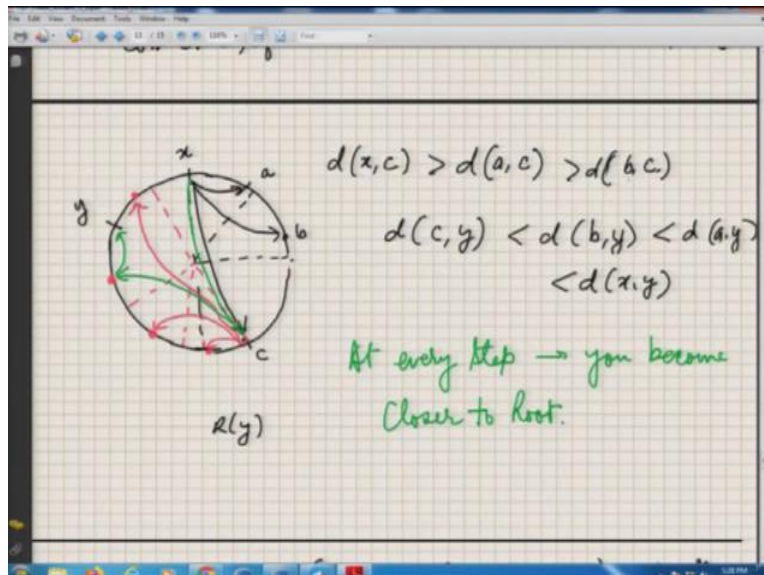 File Edit View Document Tools Window Help
13 / 15
Find
x
a
y
b
c
d(x,c) > d(a,c) > d(b,c)
d(c,y) < d(b,y) < d(a,y)
< d(x,y)
At every step → you become
Closer to Root.
R(y)
5:28 PM